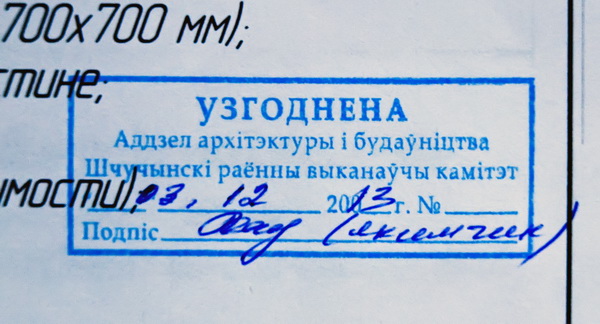 700х700 мм);
стине;
УЗГОДНЕНА
Аддзел архітэктуры і будаўніцтва
Шчучынскі раённы выканаўчы камітэт
имости);
03. 12 2013г. №
Подпіс (Якимчик)